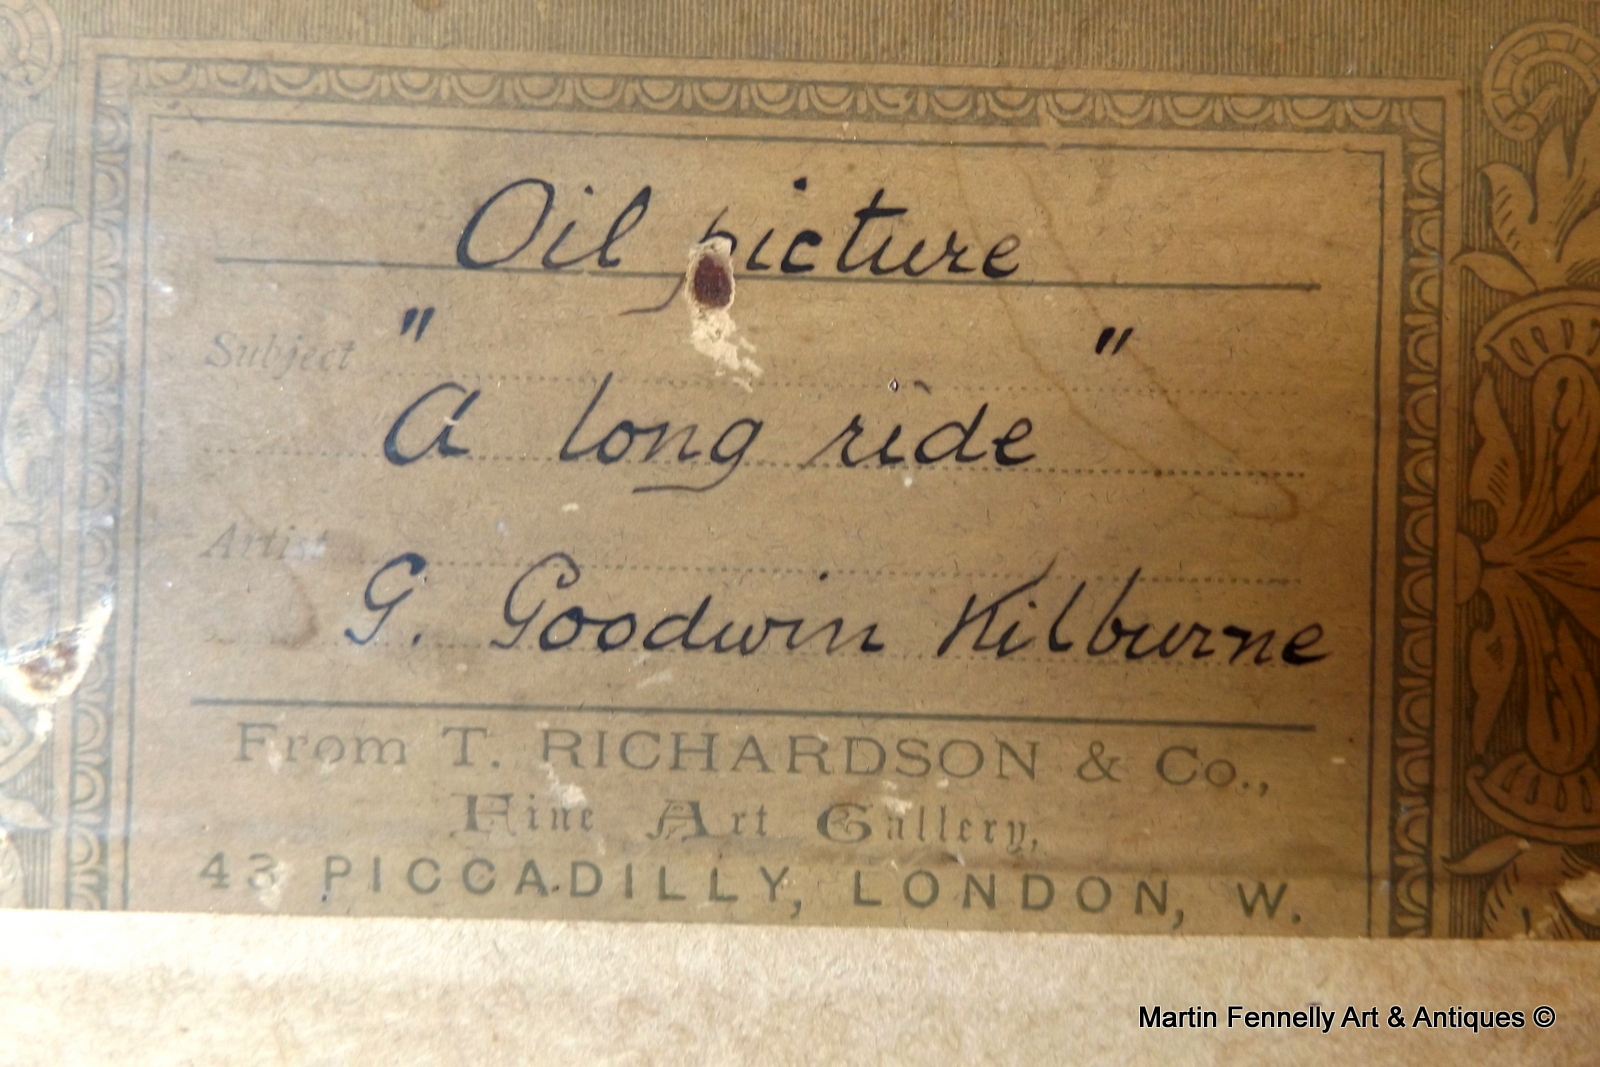 Oil picture
Subject " "
A long ride
Artist
G. Goodwin Kilburne
From T. RICHARDSON & Co.,
Fine Art Gallery,
43 PICCADILLY, LONDON, W.
Martin Fennelly Art & Antiques ©